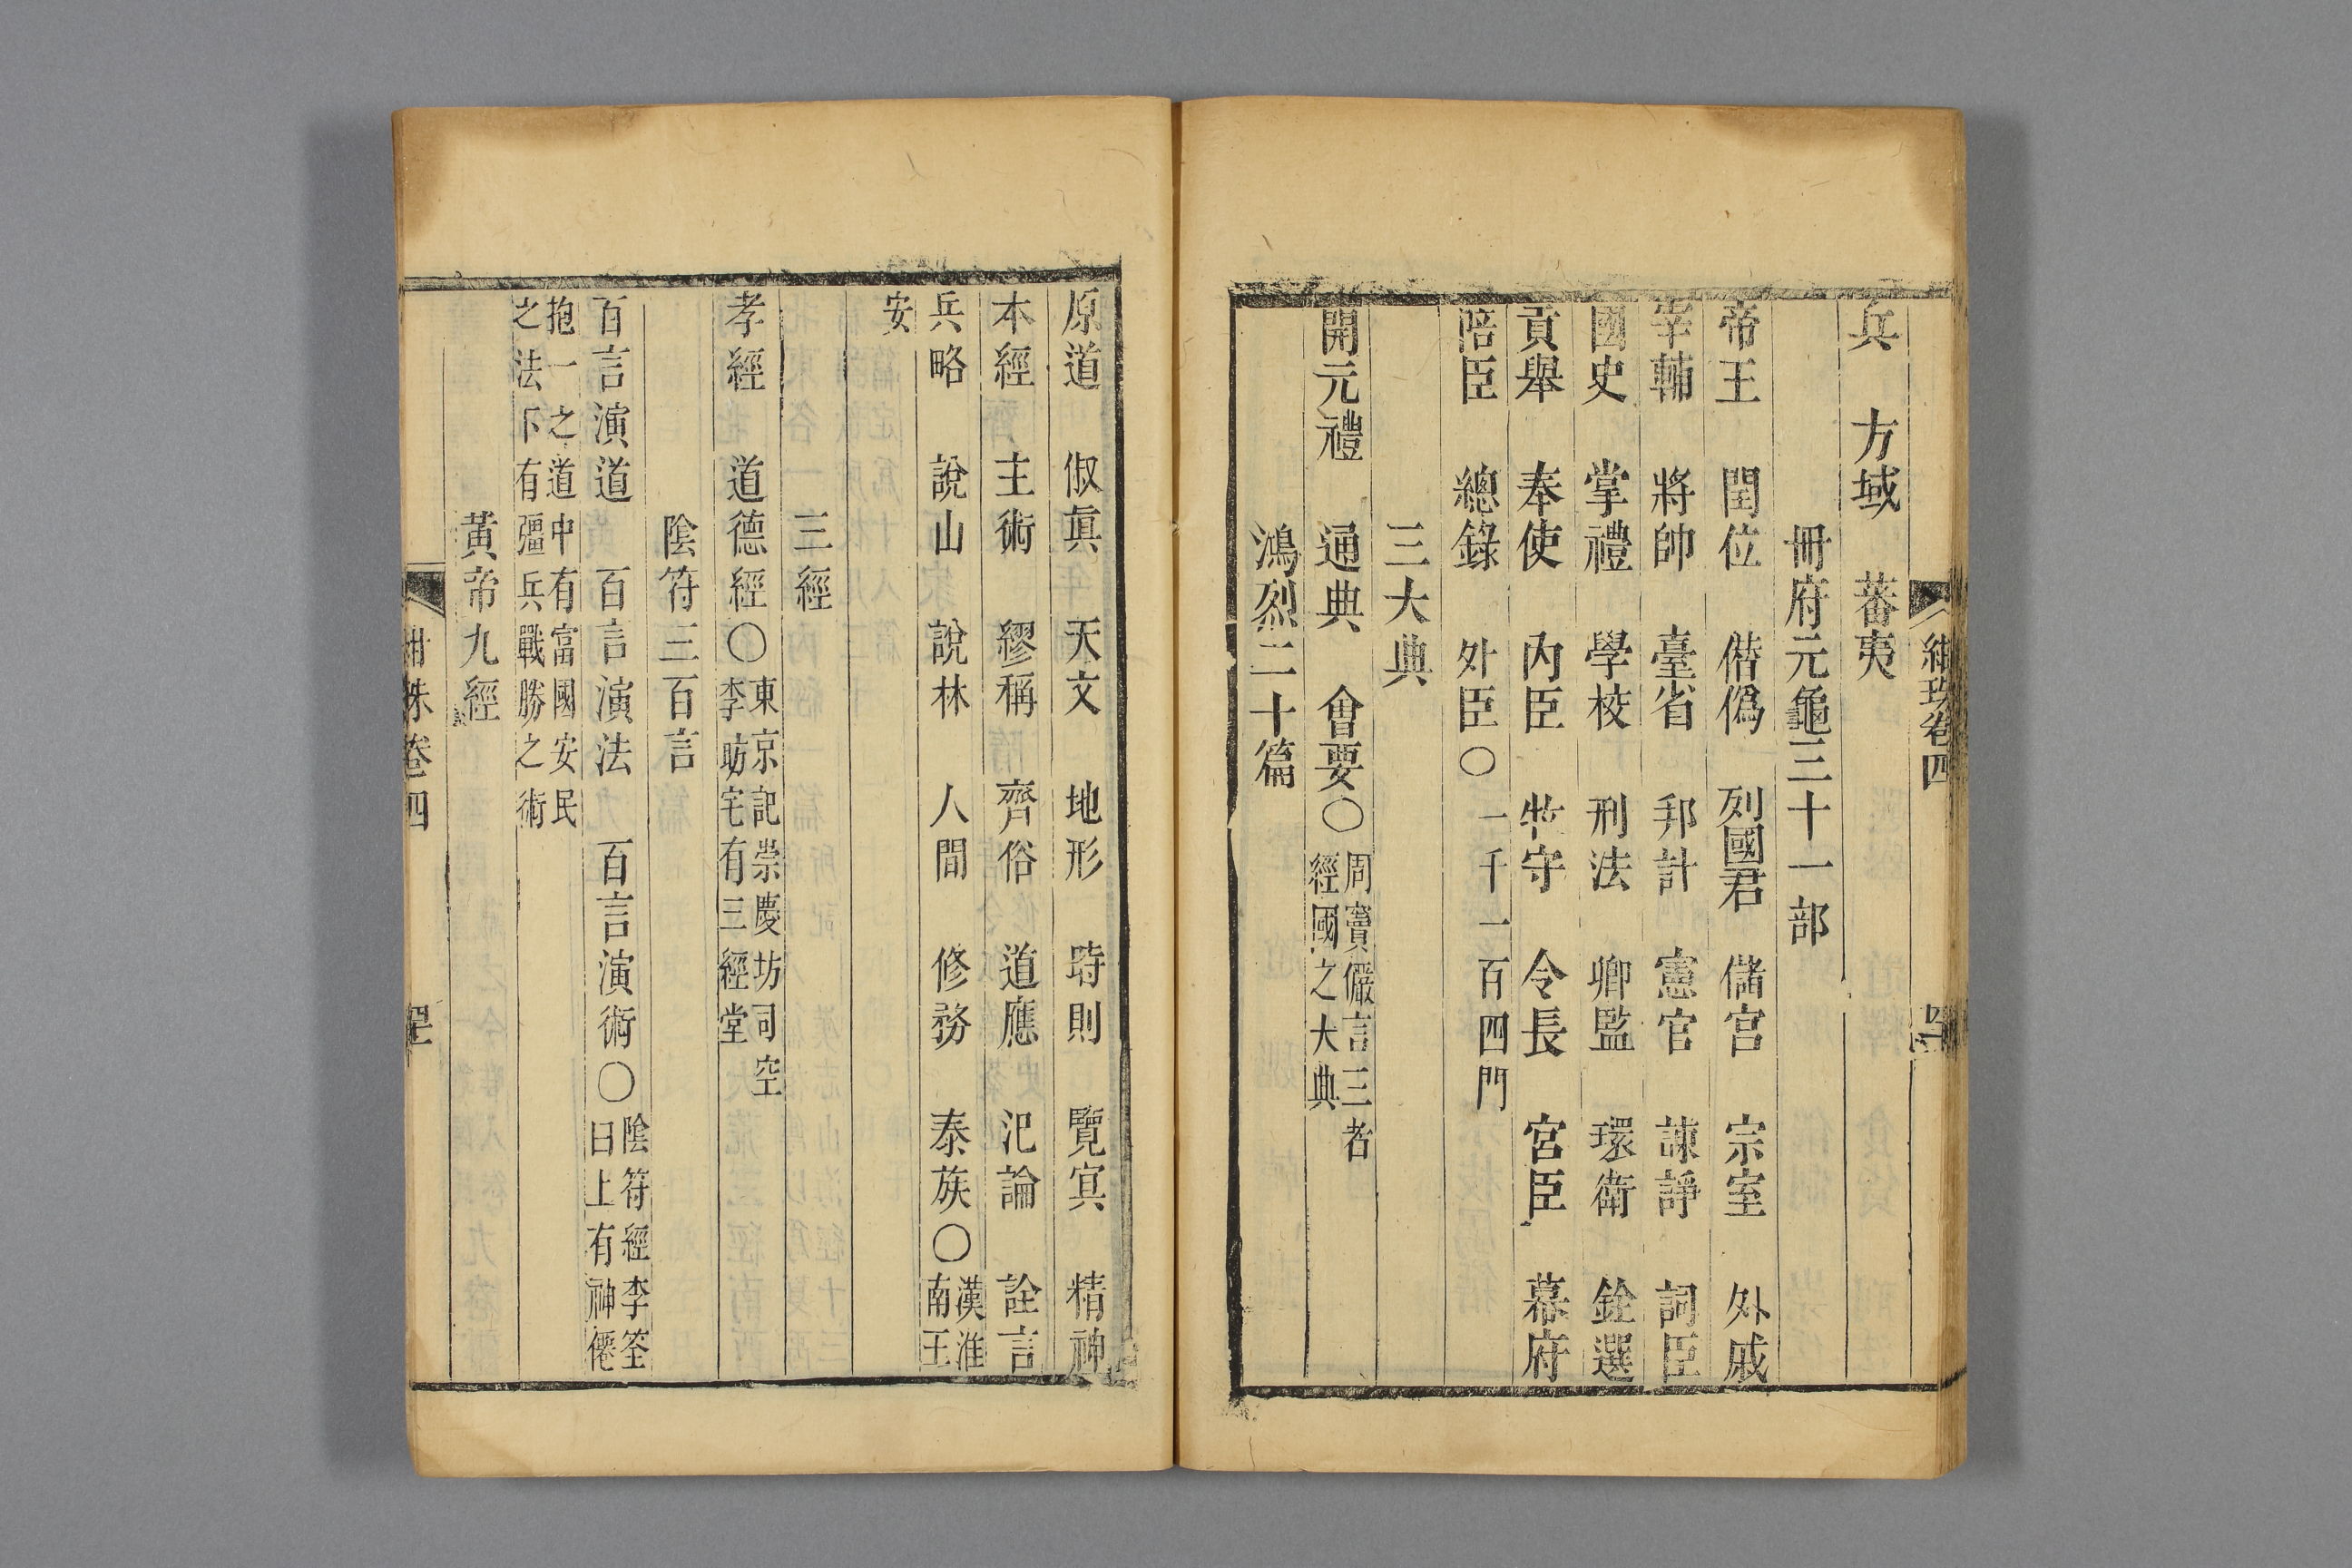 紺珠卷四
兵　方域　蕃夷
冊府元龜三十一部
帝王　閏位　僭僞　列國君　儲宮　宗室　外戚
宰輔　將帥　臺省　邦計　憲官　諫諍　詞臣
國史　掌禮　學校　刑法　卿監　環衛　銓選
貢舉　奉使　內臣　牧守　令長　宮臣　幕府
陪臣　總錄　外臣○一千一百四門
三大典
開元禮　通典　會要○周竇儼言三者
經國之大典
鴻烈二十篇
原道　俶眞　天文　地形　時則　覽冥　精神
本經　主術　繆稱　齊俗　道應　氾論　詮言
兵略　說山　說林　人間　修務　泰族○漢淮
南王
安
三經
孝經　道德經○東京記崇慶坊司空
李昉宅有三經堂
陰符三百言
百言演道　百言演法　百言演術○陰符經李筌
曰上有神僊
抱一之道中有富國安民
之法下有彊兵戰勝之術
黃帝九經
紺珠卷四